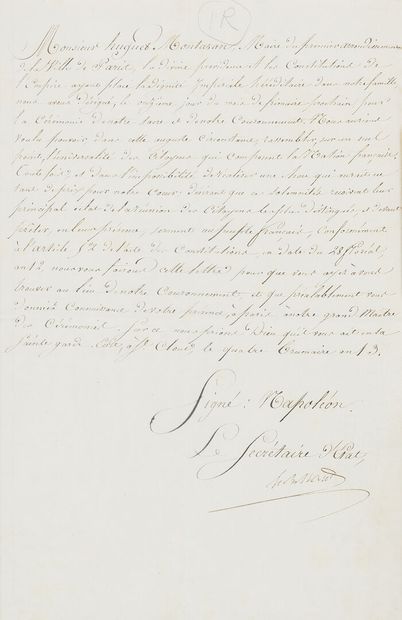 PR
Monsieur hugues Montaran, Maire du premier arrondissement
de la Ville de Paris, la divine providence et les Constitutions de
l'Empire ayant placé la dignité Impériale héréditaire dans notre famille,
nous avons désigné le onzième jour du mois de frimaire prochain pour
la Cérémonie de notre sacre et de notre Couronnement. Nous aurions
voulu pouvoir, dans cette auguste circonstance, rassembler sur un seul
point, l'universalité des Citoyens qui composent la Nation française.
Toutefois et dans l'impossibilité de réaliser une chose qui auroit eu
tant de prix pour notre Cœur, désirant que ces solemnités reçoivent leur
principal éclat de la réunion des Citoyens les plus distingués, et devant
prêter, en leur présence, serment au peuple français, Conformément
à l'article 52 de l'acte des Constitutions, en date du 28 floréal,
an 12, nous vous faisons cette lettre pour que vous ayez à vous
trouver au lieu de notre Couronnement, et que préalablement vous
donniez Connaissance de votre présence, à paris à notre grand Maître
des Cérémonies. Sur ce nous prions Dieu qu'il vous ait en sa
Sainte garde. Ecrit, à St. Cloud, le quatre Brumaire an 13.
Signé: Napoléon.
Le Secrétaire d'Etat,